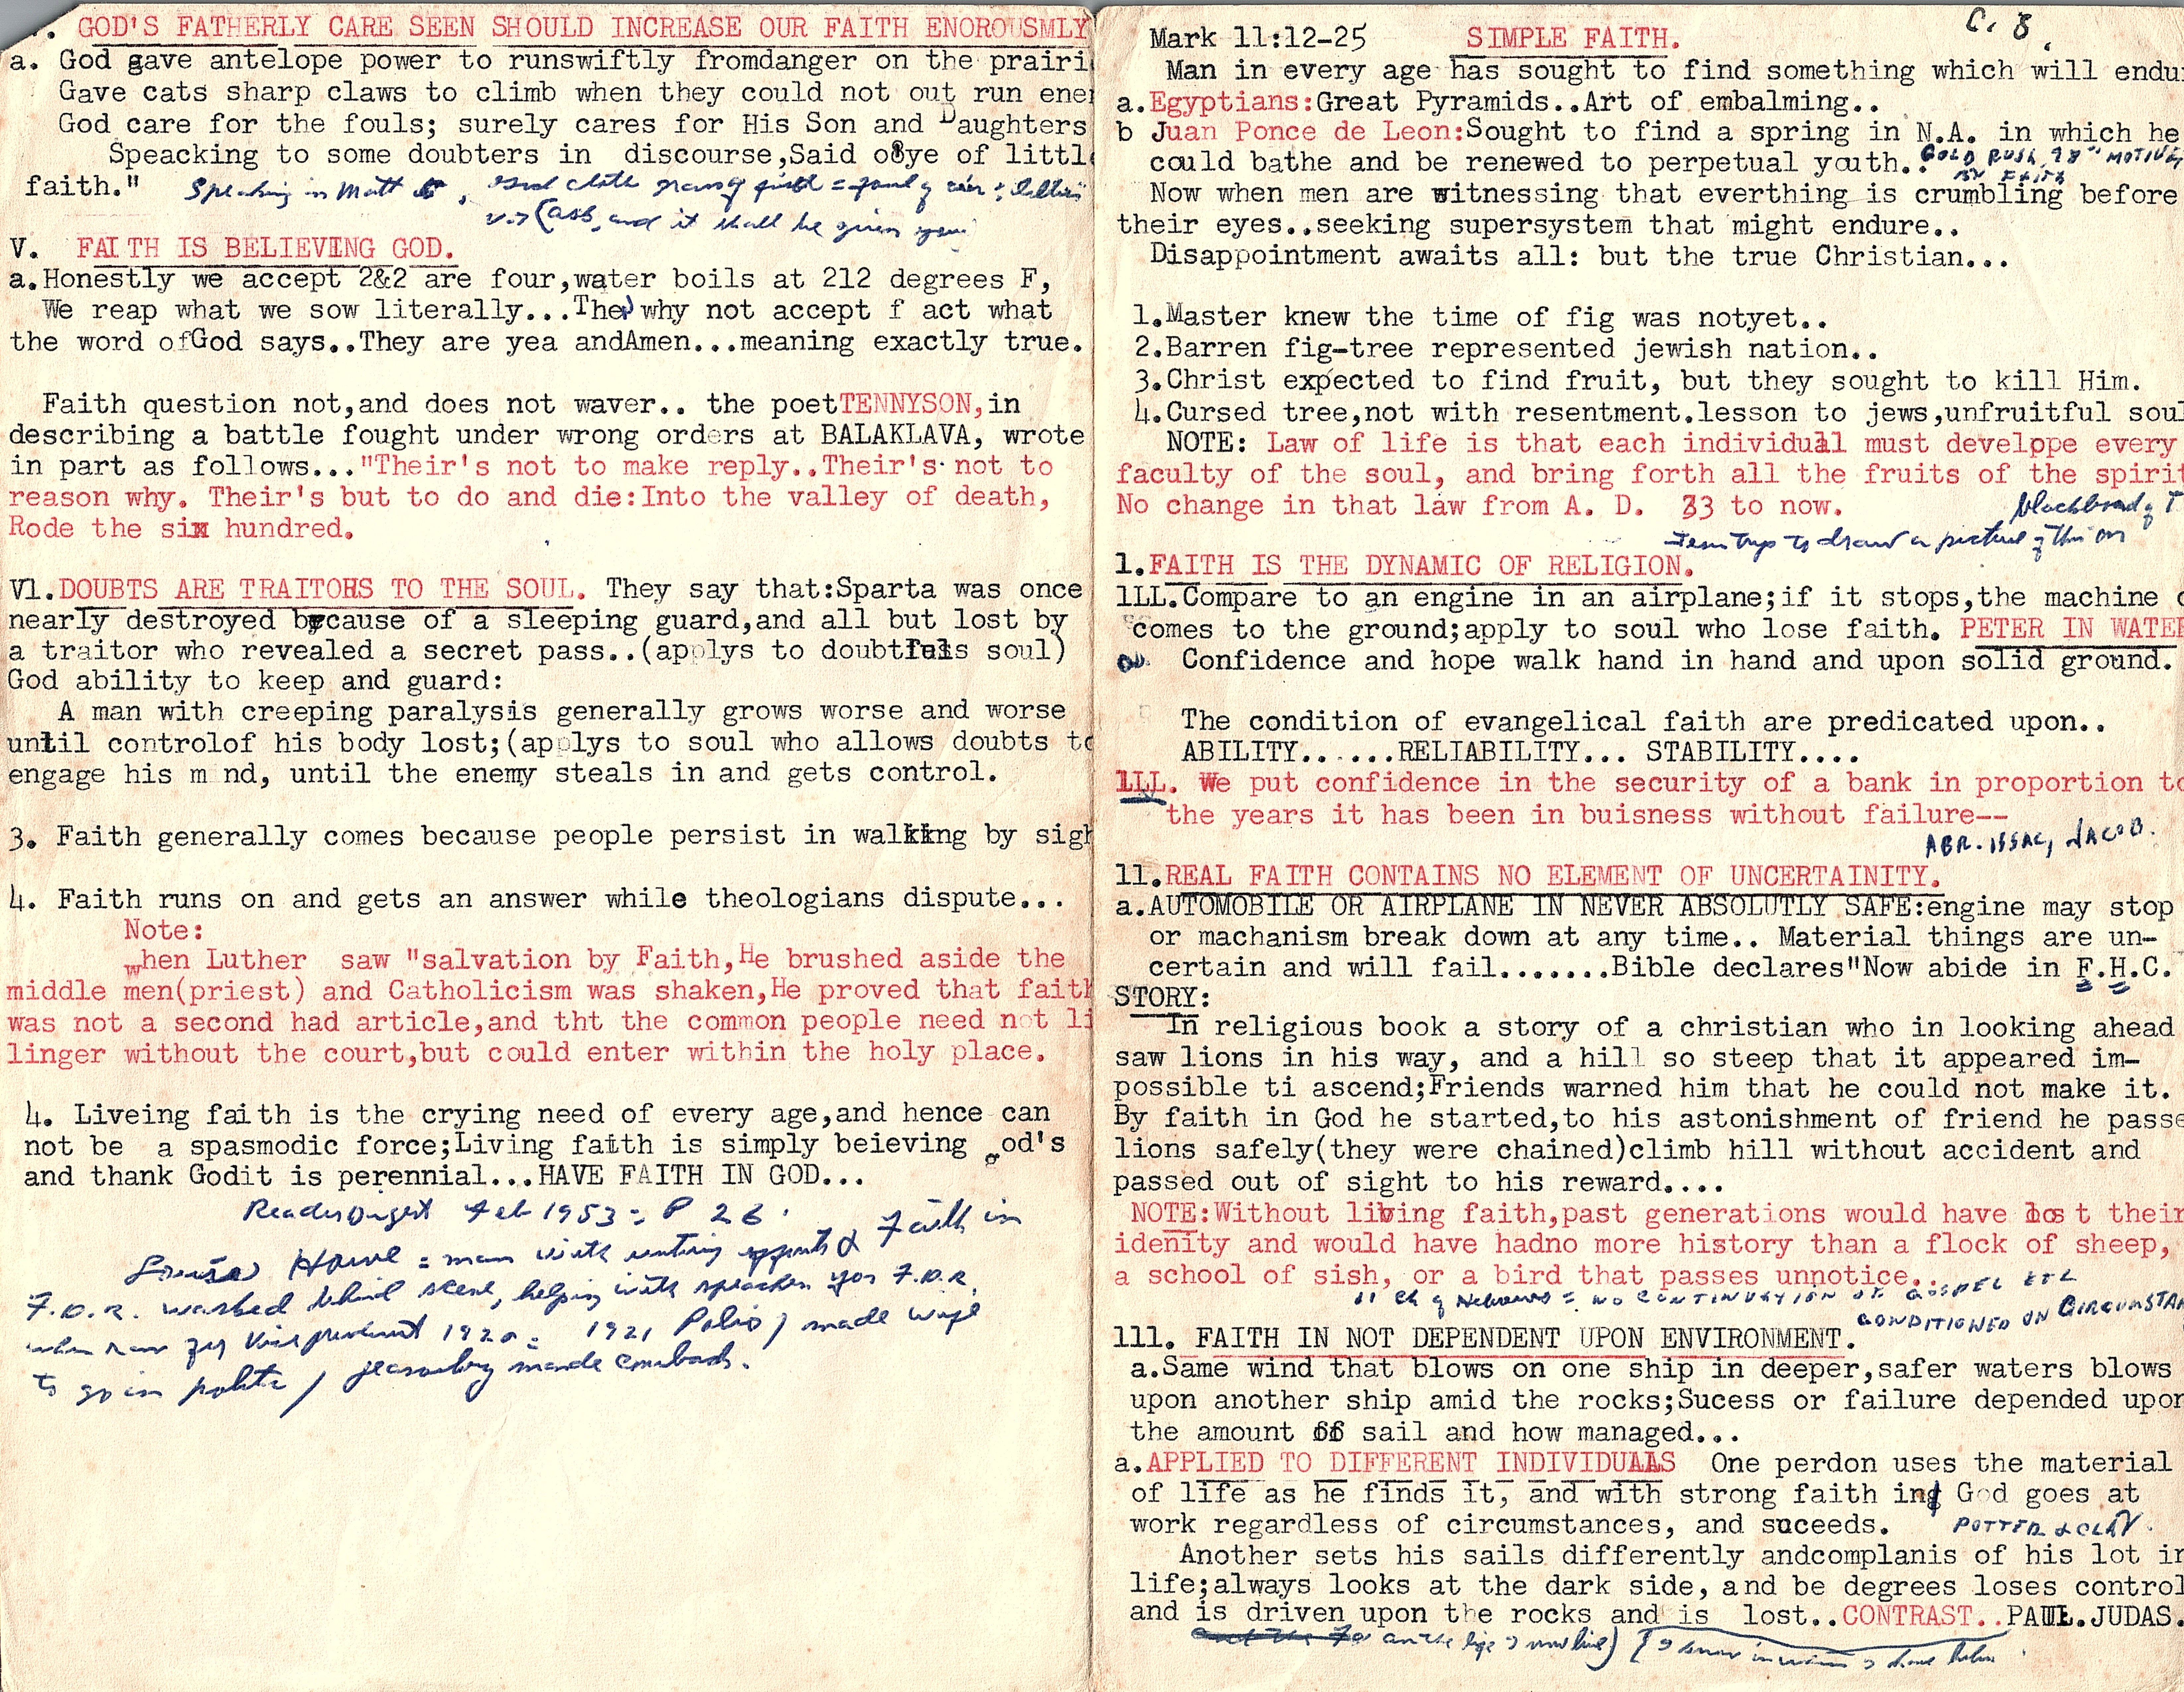 . GOD'S FATHERLY CARE SEEN SHOULD INCREASE OUR FAITH ENOROUSMLY
a. God gave antelope power to runswiftly fromdanger on the prairi
Gave cats sharp claws to climb when they could not out run ene
God care for the fouls; surely cares for His Son and Daughters
Speacking to some doubters in discourse,Said o ye of littl
faith."
Speaking in Matt 6, God cloth grass of field = fowl of air + lillies
v.7 (Ask, and it shall be given you)
V. FAITH IS BELIEVING GOD.
a.Honestly we accept 2&2 are four,water boils at 212 degrees F,
We reap what we sow literally...The why not accept f act what
the word ofGod says..They are yea andAmen...meaning exactly true.
Faith question not,and does not waver.. the poetTENNYSON,in
describing a battle fought under wrong orders at BALAKLAVA, wrote
in part as follows..."Their's not to make reply..Their's not to
reason why. Their's but to do and die:Into the valley of death,
Rode the six hundred.
Vl.DOUBTS ARE TRAITORS TO THE SOUL. They say that:Sparta was once
nearly destroyed because of a sleeping guard,and all but lost by
a traitor who revealed a secret pass..(applys to doubtfuls soul)
God ability to keep and guard:
A man with creeping paralysis generally grows worse and worse
until controlof his body lost;(applys to soul who allows doubts to
engage his m nd, until the enemy steals in and gets control.
3. Faith generally comes because people persist in walking by sigh
4. Faith runs on and gets an answer while theologians dispute...
Note:
When Luther saw "salvation by Faith,He brushed aside the
middle men(priest) and Catholicism was shaken,He proved that faith
was not a second had article,and tht the common people need not li
linger without the court,but could enter within the holy place.
4. Liveing faith is the crying need of every age,and hence can
not be a spasmodic force;Living faith is simply beieving God's
and thank Godit is perennial...HAVE FAITH IN GOD...
Readers Digest Feb 1953 = P 26.
Howe = man with & Faith in
F.D.R. worked behind scene, helping with speaches for F.D.R.
when ran for Vice president 1920 = 1921 Polio / made wife
to go in politic / made comeback.
C. 8.
Mark 11:12-25 SIMPLE FAITH.
Man in every age has sought to find something which will endu
a.Egyptians:Great Pyramids..Art of embalming..
b Juan Ponce de Leon:Sought to find a spring in N.A. in which he
could bathe and be renewed to perpetual youth.. GOLD RUSH, 98" MOTIVE
BY FAITH
Now when men are witnessing that everthing is crumbling before
their eyes..seeking supersystem that might endure..
Disappointment awaits all: but the true Christian...
1.Master knew the time of fig was notyet..
2.Barren fig-tree represented jewish nation..
3.Christ expected to find fruit, but they sought to kill Him.
4.Cursed tree,not with resentment.lesson to jews,unfruitful soul
NOTE: Law of life is that each individual must developpe every
faculty of the soul, and bring forth all the fruits of the spirit
No change in that law from A. D. 33 to now.
blackboard of T
trys to draw a picture of this on
1.FAITH IS THE DYNAMIC OF RELIGION.
lLL.Compare to an engine in an airplane;if it stops,the machine
comes to the ground;apply to soul who lose faith. PETER IN WATER
Confidence and hope walk hand in hand and upon solid ground.
The condition of evangelical faith are predicated upon..
ABILITY.......RELIABILITY... STABILITY....
lLL. We put confidence in the security of a bank in proportion to
the years it has been in buisness without failure--
ABR. ISSAC, JACOB.
11.REAL FAITH CONTAINS NO ELEMENT OF UNCERTAINITY.
a.AUTOMOBILE OR AIRPLANE IN NEVER ABSOLUTLY SAFE:engine may stop
or machanism break down at any time.. Material things are un-
certain and will fail.......Bible declares"Now abide in F.H.C.
STORY:
In religious book a story of a christian who in looking ahead
saw lions in his way, and a hill so steep that it appeared im-
possible ti ascend;Friends warned him that he could not make it.
By faith in God he started,to his astonishment of friend he passe
lions safely(they were chained)climb hill without accident and
passed out of sight to his reward....
NOTE:Without living faith,past generations would have los t their
idenity and would have hadno more history than a flock of sheep,
a school of sish, or a bird that passes unnotice..
11 Ch of Hebrews = NO CONTINUATION OF GOSPEL ETC
CONDITIONED ON CIRCUMSTAN
111. FAITH IN NOT DEPENDENT UPON ENVIRONMENT.
a.Same wind that blows on one ship in deeper,safer waters blows
upon another ship amid the rocks;Sucess or failure depended upon
the amount of sail and how managed...
a.APPLIED TO DIFFERENT INDIVIDUALS One perdon uses the material
of life as he finds it, and with strong faith in God goes at
work regardless of circumstances, and suceeds. POTTER & CLAY.
Another sets his sails differently andcomplanis of his lot in
life;always looks at the dark side, and be degrees loses control
and is driven upon the rocks and is lost..CONTRAST..PAUL.JUDAS.
the life I now live) (I know in whom I have